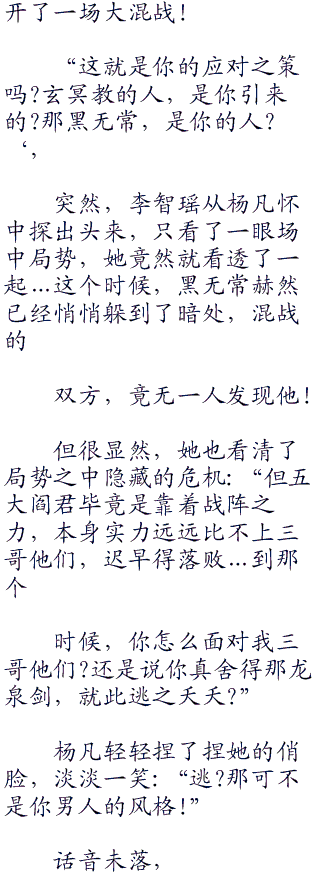 开了一场大混战！
“这就是你的应对之策
吗?玄冥教的人，是你引来
的?那黑无常，是你的人?
‘，
突然，李智瑶从杨凡怀
中探出头来，只看了一眼场
中局势，她竟然就看透了一
起…这个时候，黑无常赫然
已经悄悄躲到了暗处，混战
的
双方，竟无一人发现他！
但很显然，她也看清了
局势之中隐藏的危机：“但五
大阎君毕竟是靠着战阵之
力，本身实力远远比不上三
哥他们，迟早得落败…到那
个
时候，你怎么面对我三
哥他们?还是说你真舍得那龙
泉剑，就此逃之夭夭?”
杨凡轻轻捏了捏她的俏
脸，淡淡一笑：“逃?那可不
是你男人的风格！”
话音未落，